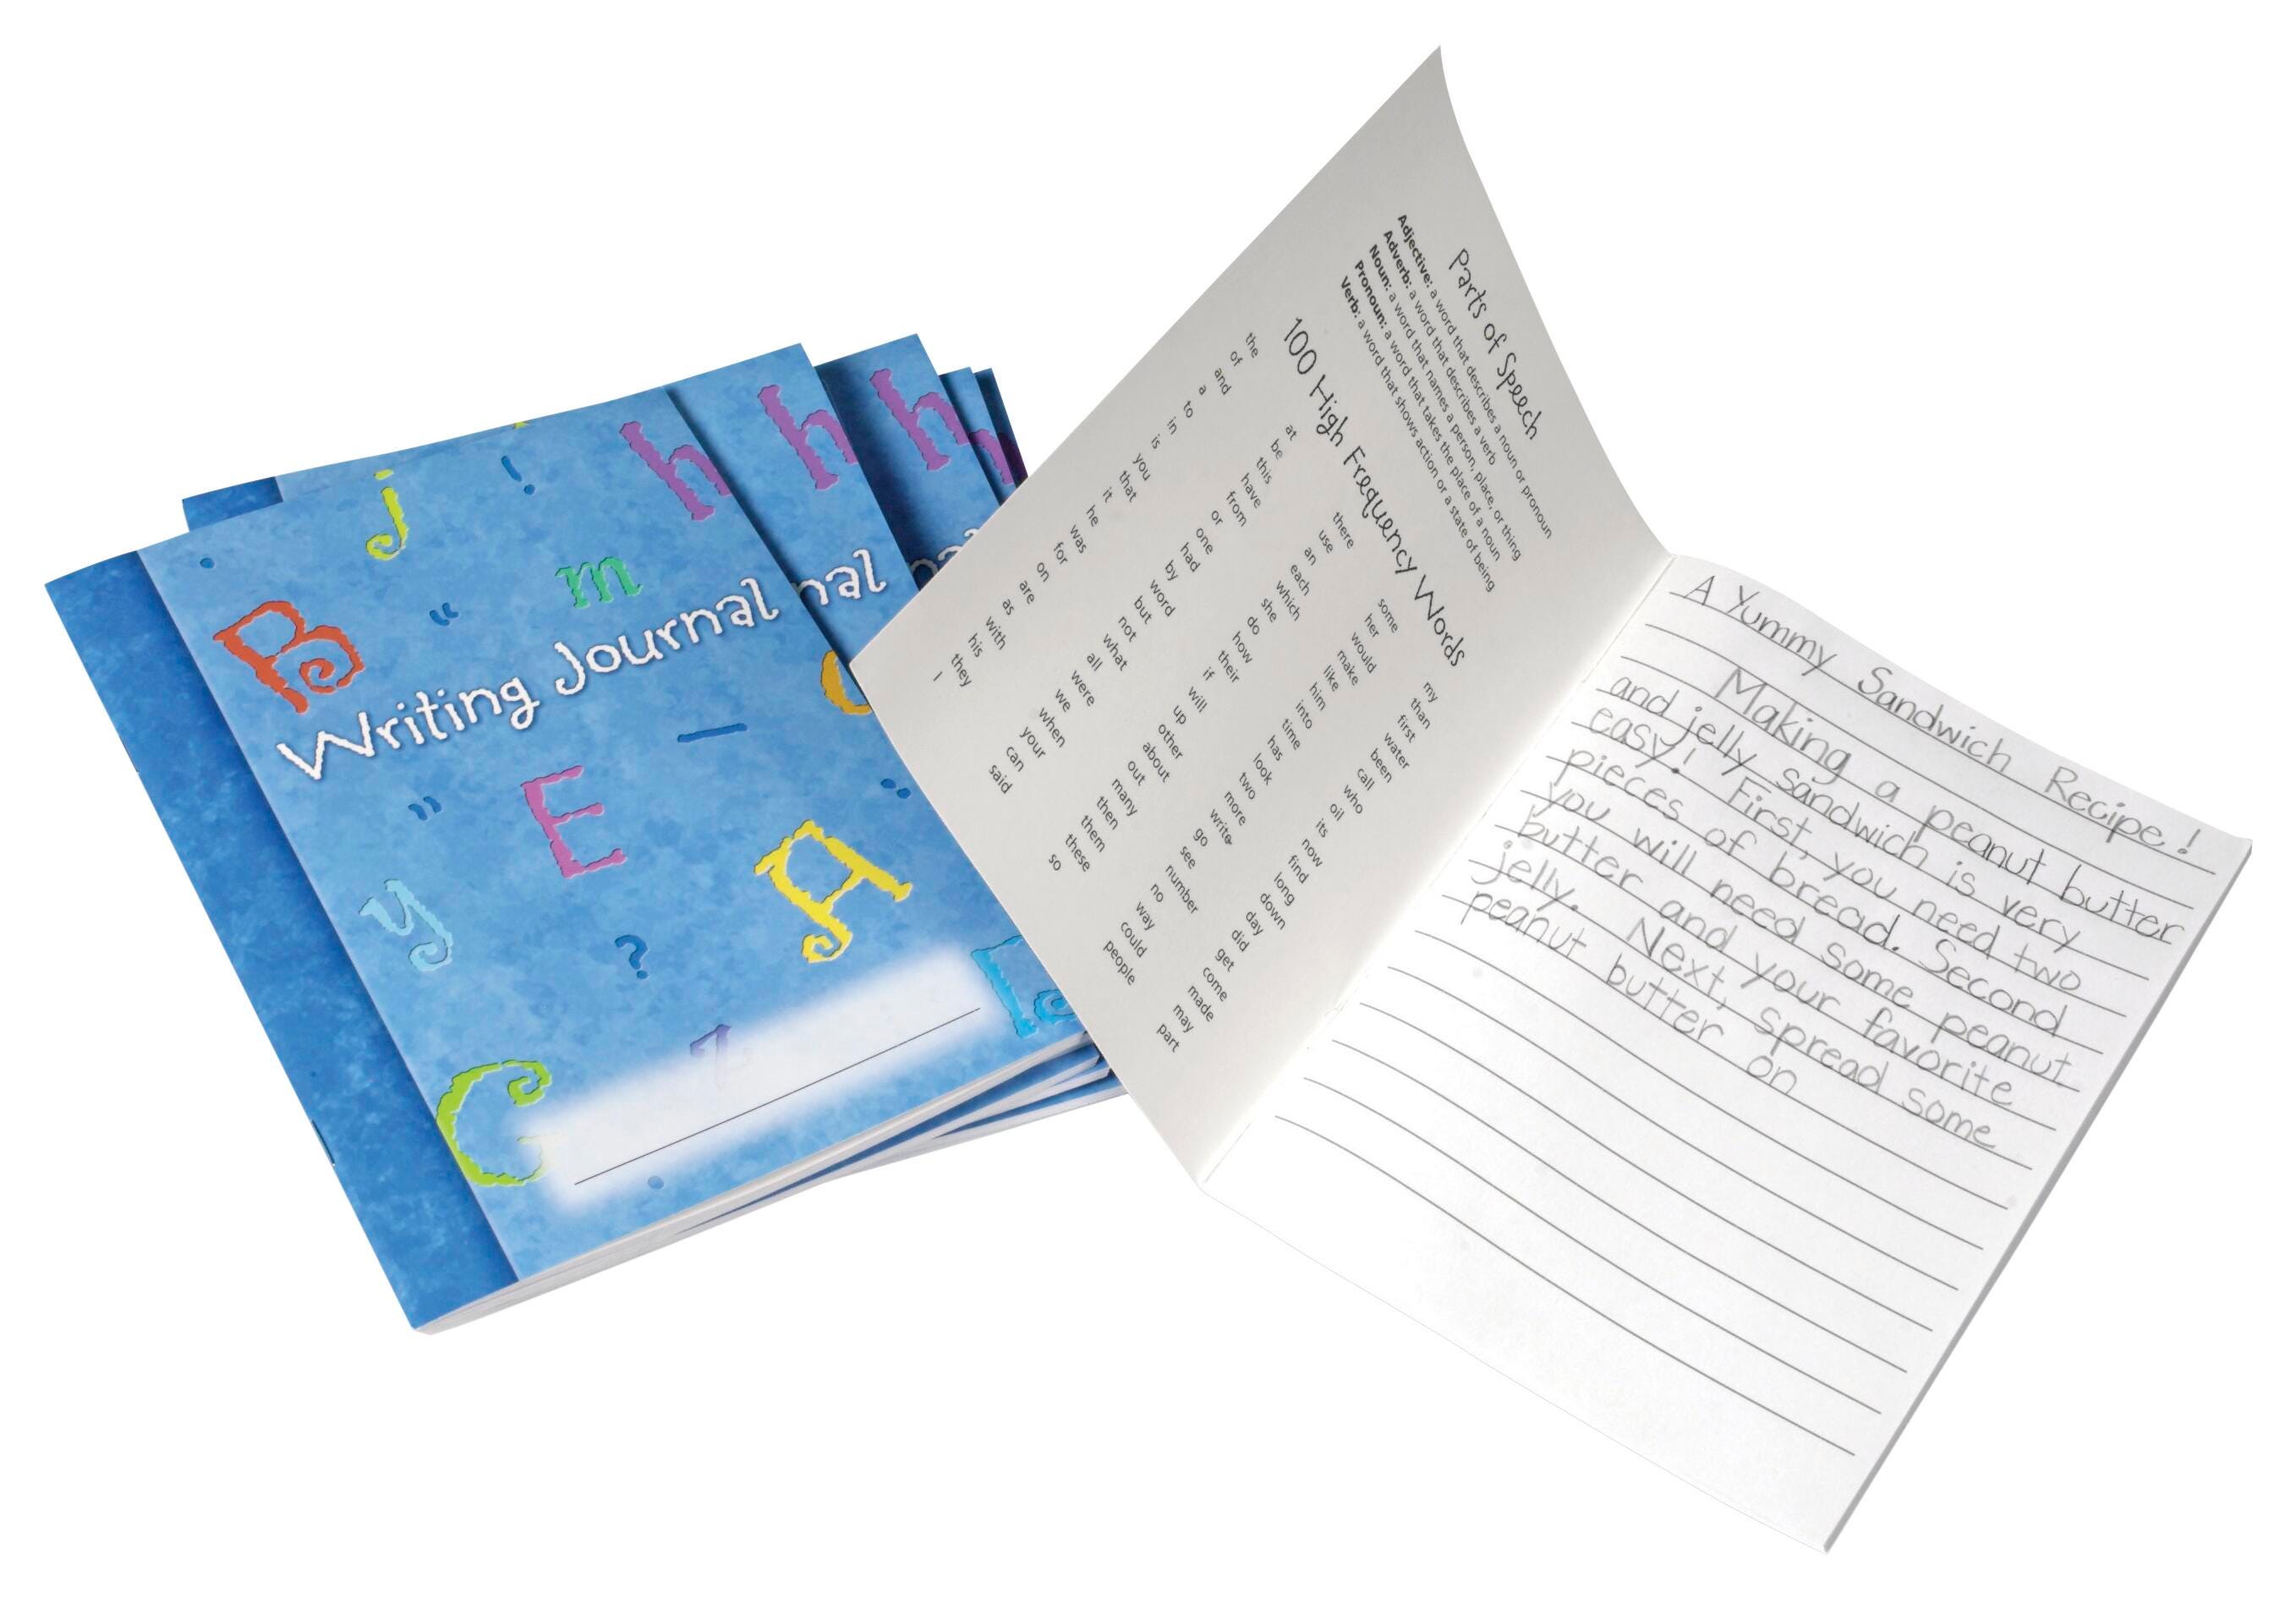 j ! h h h
B “ m
Writing Journal
nal
nal
” E — ..
y ? A
G z
Parts of Speech
Adjective: a word that describes a noun or pronoun
Adverb: a word that describes a verb
Noun: a word that names a person, place, or thing
Pronoun: a word that takes the place of a noun
Verb: a word that shows action or a state of being
100 High Frequency Words
the at there some my
of be use her than
and this an would first
a have each make water
to from which like been
in or she him call
is one do into who
you had how time oil
that by their has its
it word if look now
he but will two find
was not up more long
for what other write down
on all about go day
are were out see did
as we many number get
with when then no come
his your them way made
they can these could may
I said so people part
A Yummy Sandwich Recipe!
Making a peanut butter
and jelly sandwich is very
easy! First, you need two
pieces of bread. Second
you will need some peanut
butter and your favorite
jelly. Next, spread some
peanut butter on